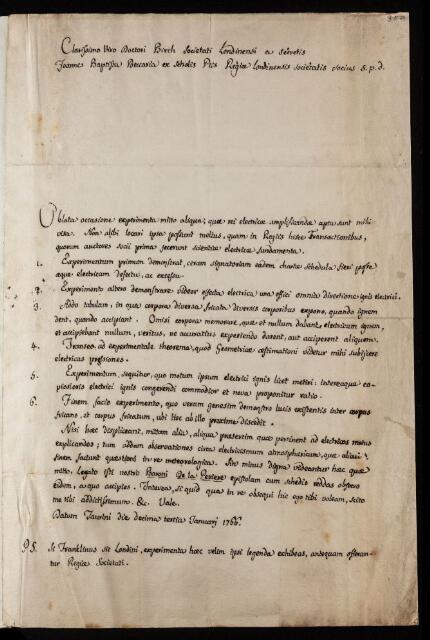 Clarissimo Viro Doctori Birch Societati Londinensi a secretis
Joannes Baptista Beccaria ex Scholis Piis Regiae Londinensis societatis socius s. p. d.
Oblata occasione experimenta mitto aliqua, quae rei electricae amplificandae apta sunt mihi
visa. Non alibi locari ipsa possunt melius, quam in Regiis hisce Transactionibus,
quarum auctores socii prima jecerunt scientiae electricae fundamenta.
1. Experimentum primum demonstrat, ceram signatoriam eadem chartae schedula fieri posse
aeque electricam defectu, ac excessu.
2. Experimento altero demonstrare videor effecta electrica una effici omnia directione ignis electrici.
3. Addo tabulam, in qua corpora diversa fricata diversis corporibus expono, quando ignem
dent, quando accipiant. Omisi corpora memorare, quae et nullum dabant electricum ignem,
et accipiebant nullum, veritus, ne accuratius experiendo darent, aut acciperent aliquem.
4. Transeo ad experimentale theorema, quod Geometricae aestimationi videtur mihi subjicere
electricas pressiones.
5. Experimentum sequitur, quo motum ipsum electrici ignis licet metiri: intereaque
electrici ignis congerendi commodior et nova proponitur ratio.
6. Finem facio experimento, quo veram genesim demonstro lucis existentis inter corpus
fricans, et corpus fricatum, ubi hoc ab illo proxime discedit.
Nisi haec displiceant, mittam alia, aliqua praesertim quae pertinent ad electricos motus
explicandos; tum addam observationes circa electricismum atmosphaericum, quae aliqui
finem faciunt quaestioni in re meteorologica. Sin minus digna videantur haec quae
mitto, Legato isti nostro Baroni de la Perriere epistolam cum schedis reddas obsecro
eidem, a quo accipies. Interea, si quid qua in re obsequi hic ego tibi valeam, scito
me tibi addictissimum. &c. Vale.
Datum Taurini die decima tertia Januarj 1766.
PS. Si Franklinus sit Londini, experimenta haec velim ipsi legenda exhibeas, antequam offeran-
tur Regiae Societati.